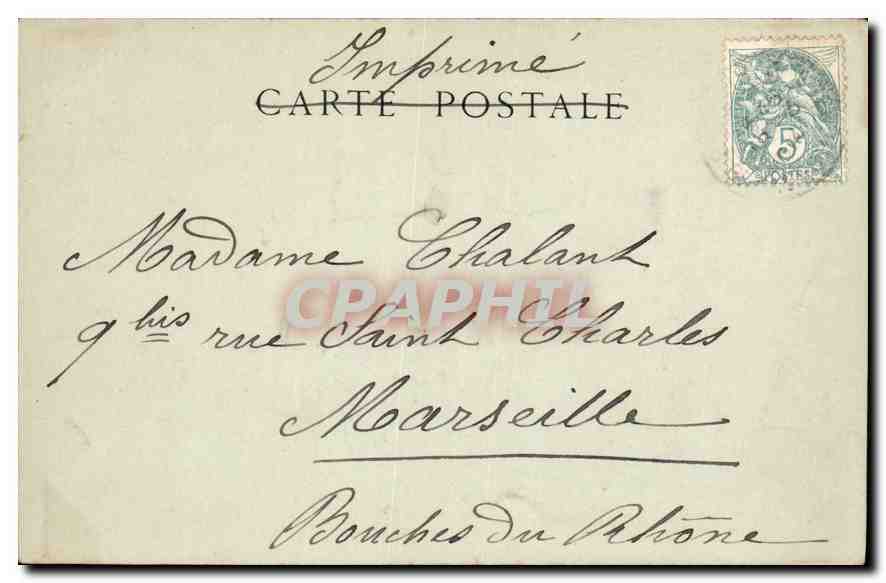 Imprimé
CARTE POSTALE
5
POSTES
Madame Chalant
9 bis rue Saint Charles
CPAPHIL
Marseille
Bouches du Rhône